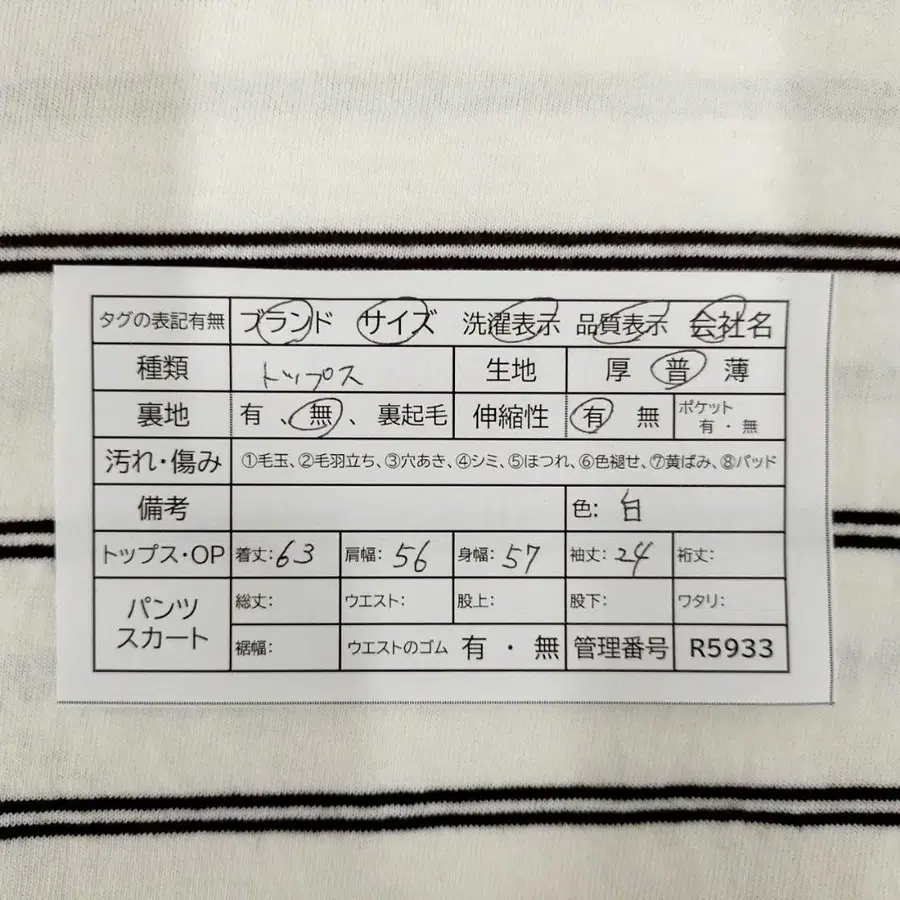 タグの表記有無 ブランド サイズ 洗濯表示 品質表示 会社名
種類 トップス 生地 厚 普 薄
裏地 有 、無 、裏起毛 伸縮性 有 無 ポケット 有・無
汚れ・傷み ①毛玉、②毛羽立ち、③穴あき、④シミ、⑤ほつれ、⑥色褪せ、⑦黄ばみ、⑧パッド
備考 色: 白
トップス・OP 着丈:63 肩幅:56 身幅:57 袖丈:24 裄丈:
パンツ スカート 総丈: ウエスト: 股上: 股下: ワタリ:
裾幅: ウエストのゴム 有・無 管理番号 R5933